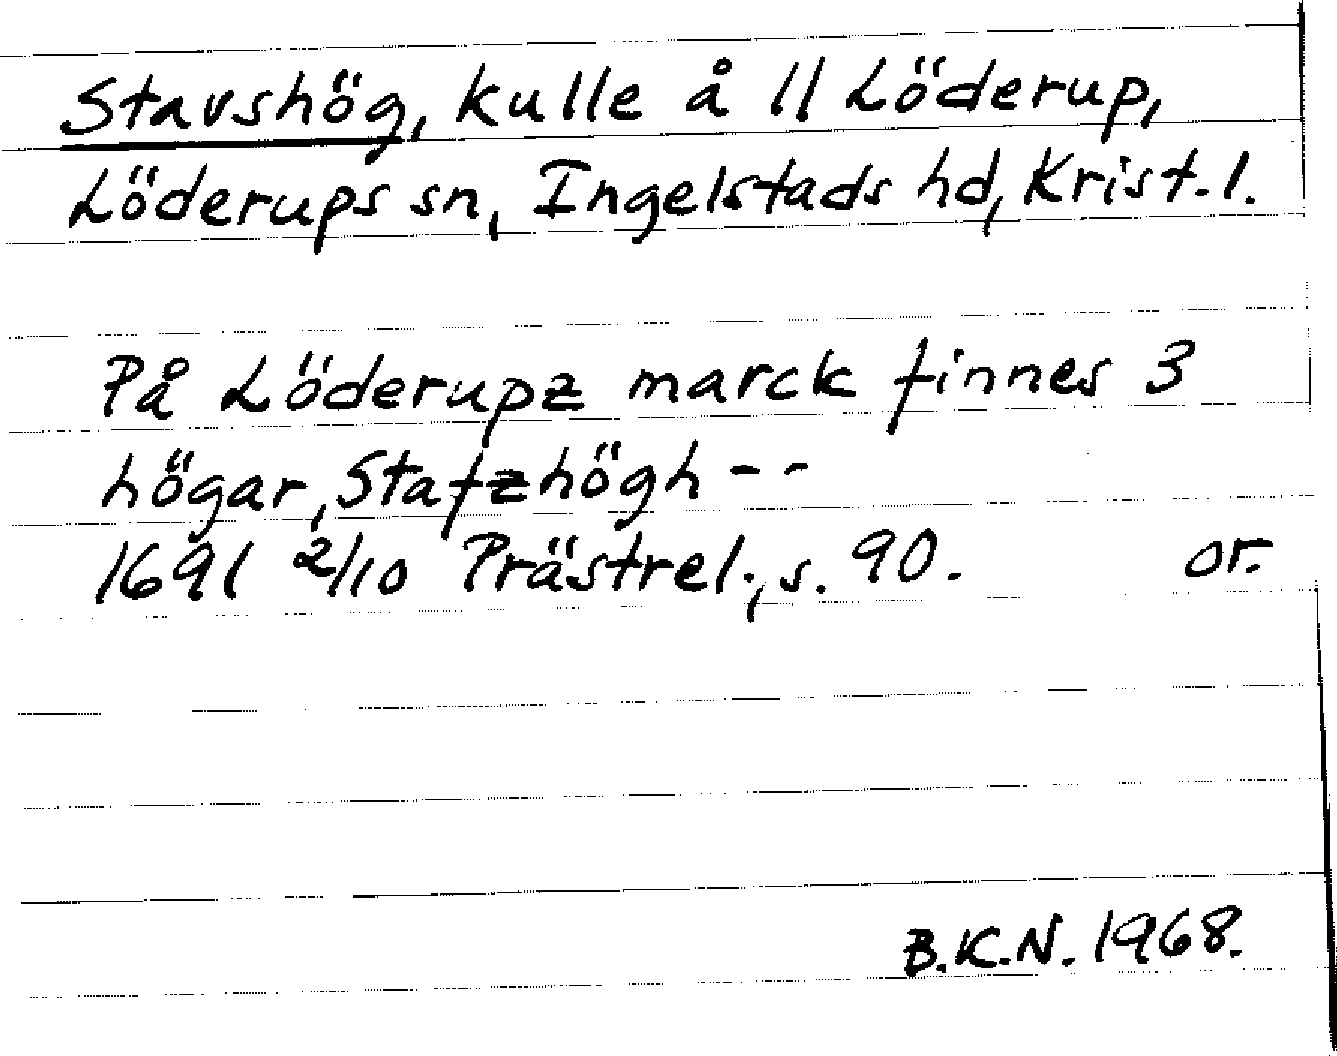 Stavshög, kulle å 11 Löderup,
Löderups sn, Ingelstads hd, Krist. l.
På Löderupz marck finnes 3
högar, Stafzhögh - -
1691 2/10 Prästrel., s. 90. or.
B.K.N. 1968.